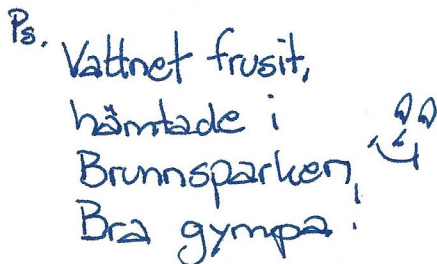 Ps.
Vattnet frusit,
hämtade i
Brunnsparken,
Bra gympa!